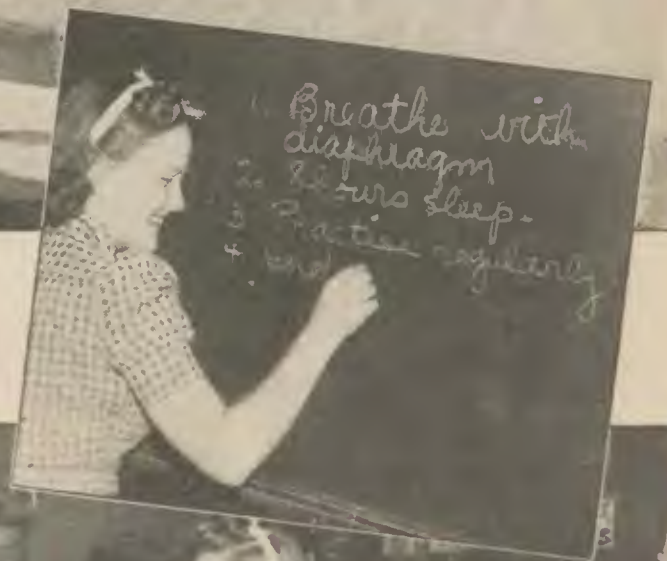 1. Breathe with
diaphragm
2. 8 hours sleep.
3. Practice regularly
4. and
5